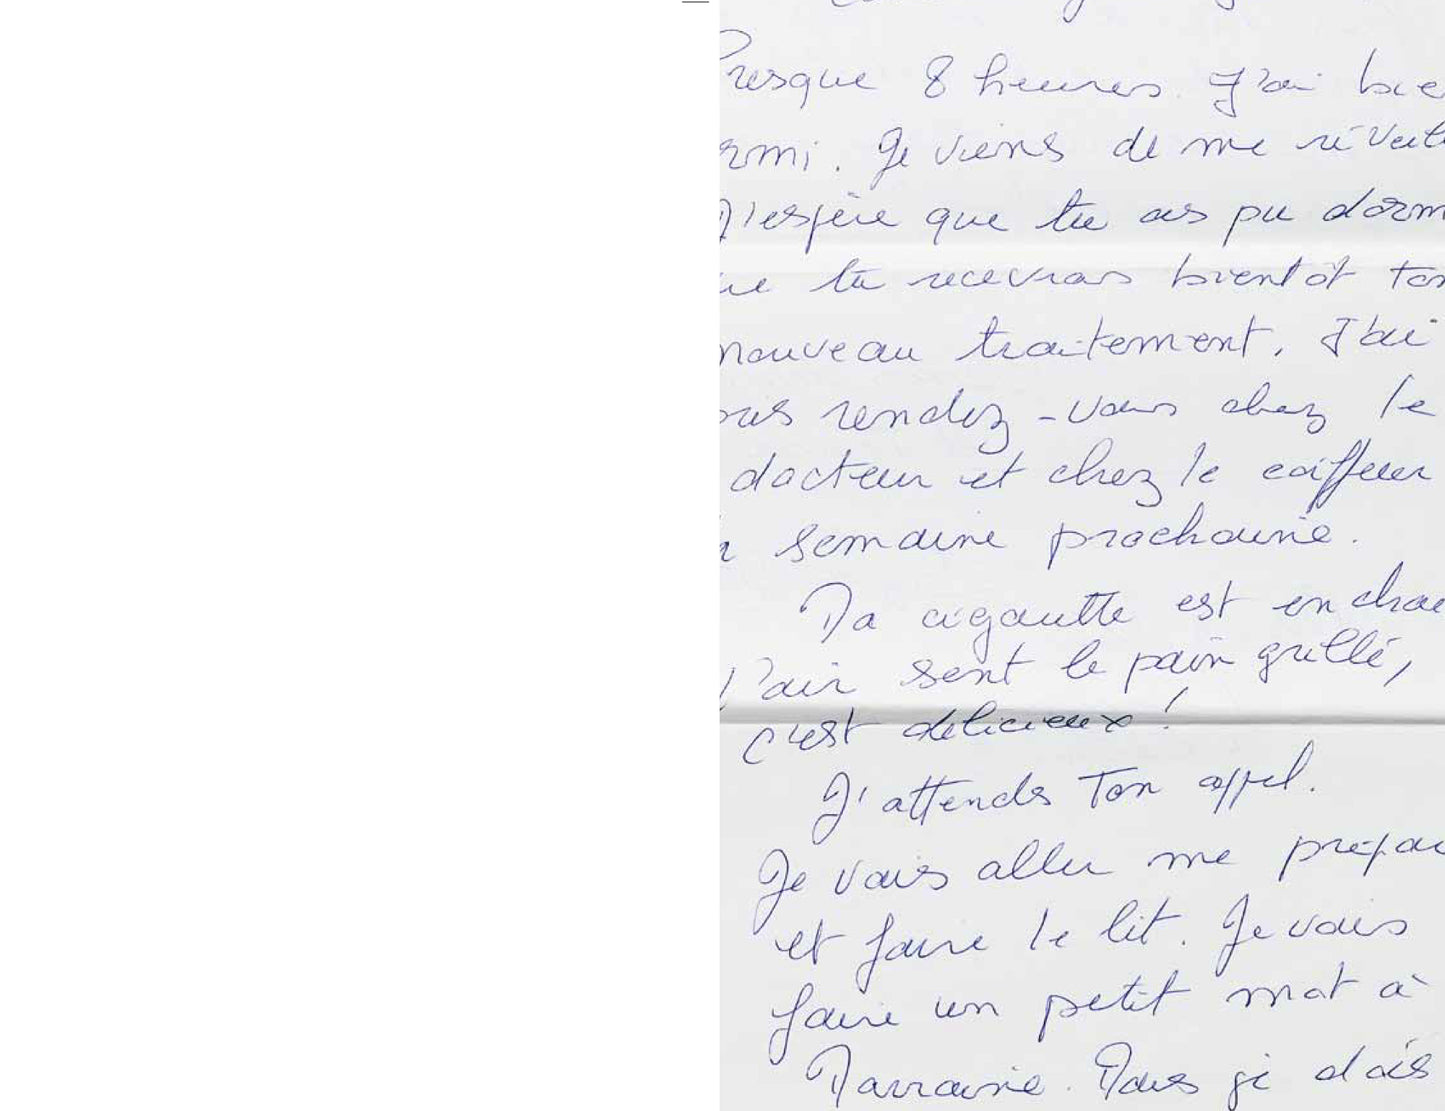 Presque 8 heures. J'ai bie
rmi. Je viens de me réveill
J'espère que tu as pu dorm
ue tu recevras bientôt ton
nouveau traitement. J'ai
pris rendez-vous chez le
docteur et chez le coiffeur
la semaine prochaine.
Ta cigaulte est en chau
l'air sent le pain grillé,
c'est délicieux !
J'attends ton appel.
Je vais aller me prépar
et faire le lit. Je vais
faire un petit mot à
Marraine. Mais je dois